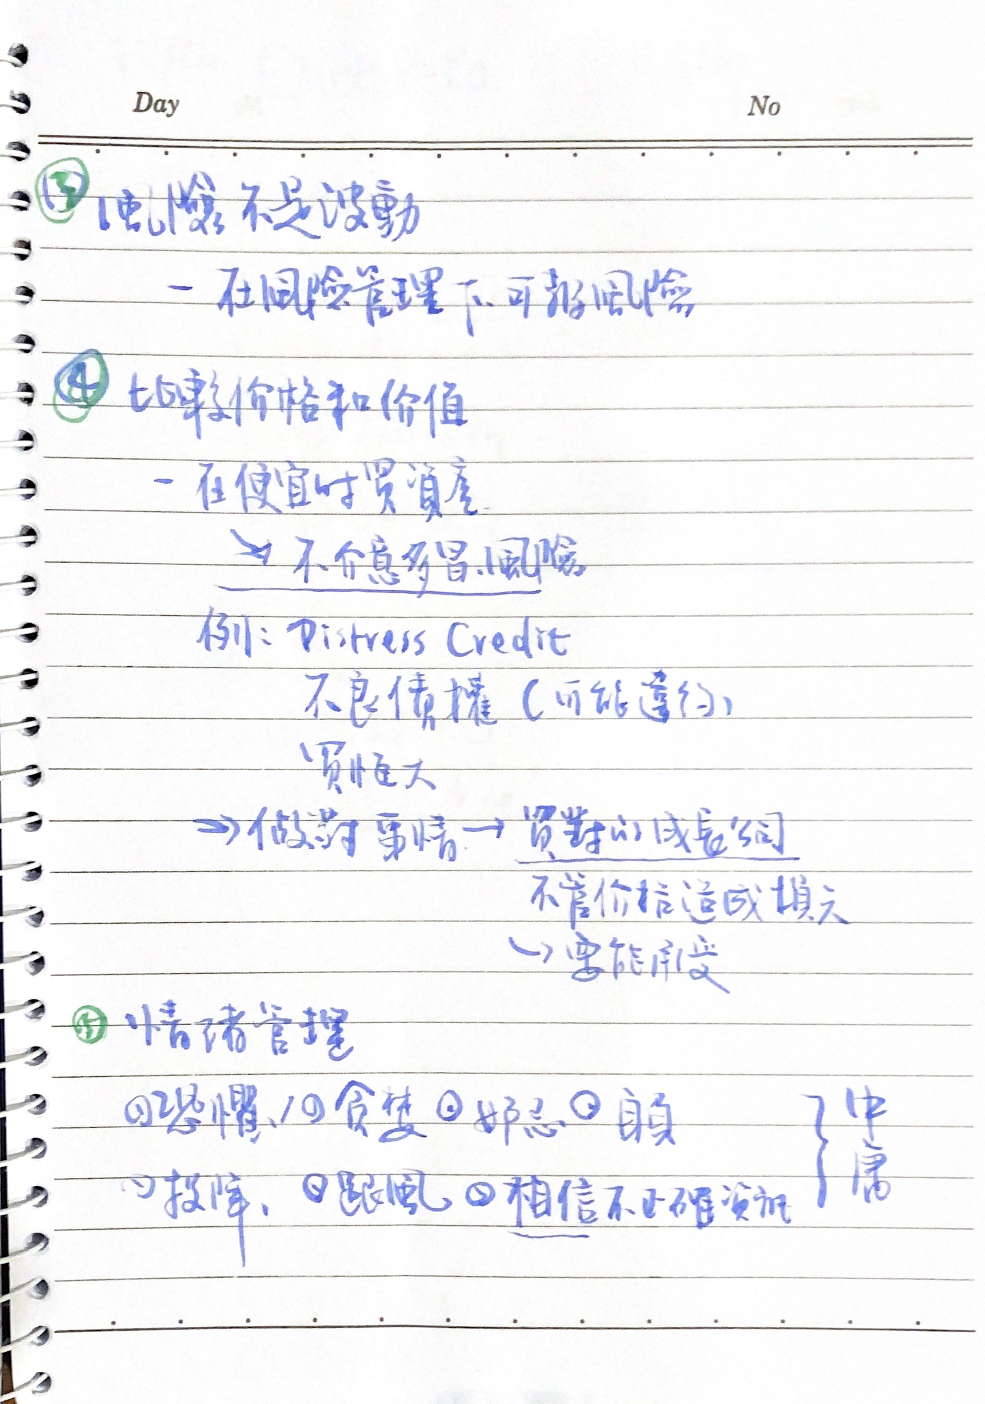 Day No
③ 風險不是波動
- 在風險管理下、可報風險
④ 比較价格和价值
- 在便宜时買資產
↘ 不介意多冒風險
例: Distress Credit
不良債權 (可能違約)
買恒大
⇒ 做對事情 → 買對的成長公司
不管价格造成損失
↳ 要能承受
⑤ 情緒管理
恐懼、貪婪 妒忌 自負
投降、 跟風 相信不正確資訊
} 中庸